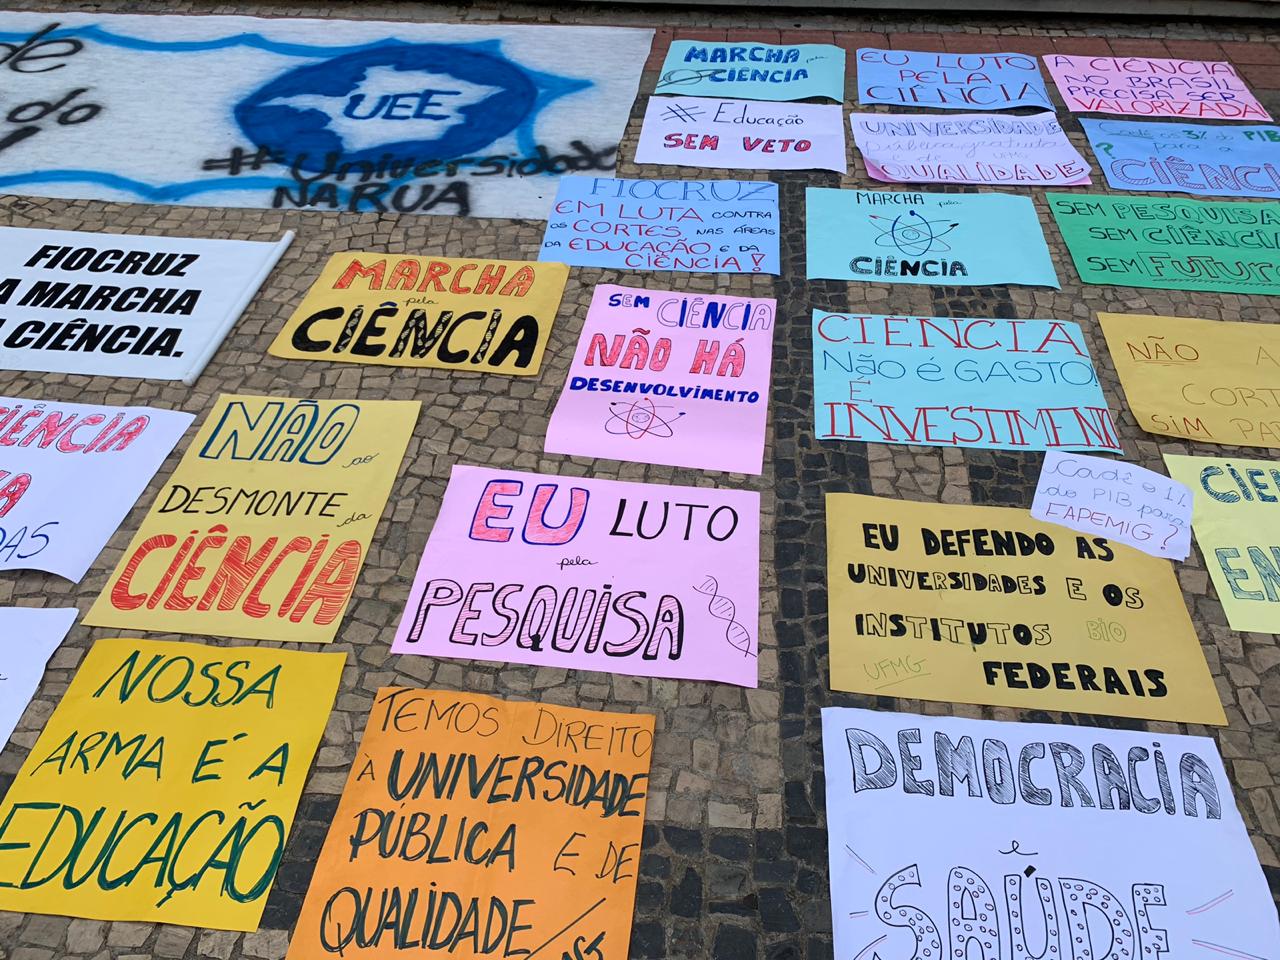 de
%
UEE
#Universidade
NA RUA
MARCHA
pela
CIÊNCIA
EU LUTO
PELA
CIÊNCIA
A CIÊNCIA
NO BRASIL
PRECISA SER
VALORIZADA
# Educação
SEM VETO
UNIVERSIDADE
pública, gratuita
e de
QUALIDADE
Cadê os 3% do PIB
para a
CIÊNCI
?
FIOCRUZ
EM LUTA CONTRA
OS CORTES NAS ÁREAS
DA EDUCAÇÃO E DA
CIÊNCIA!
MARCHA pela
CIÊNCIA
SEM PESQUISA
SEM CIÊNCIA
SEM FUTUR
FIOCRUZ
A MARCHA
CIÊNCIA.
MARCHA
pela
CIÊNCIA
SEM CIÊNCIA
NÃO HÁ
DESENVOLVIMENTO
CIÊNCIA
Não é GASTO!
É
INVESTIMENTO
NÃO A
CORT
SIM PA
CIÊNCIA
DAS
NÃO ao
DESMONTE da
CIÊNCIA
EU LUTO
pela
PESQUISA
Cadê o 1%
do PIB para
FAPEMIG?
EU DEFENDO AS
UNIVERSIDADES E OS
INSTITUTOS BIO
UFMG
FEDERAIS
CIÊ
EM
NOSSA
ARMA É A
EDUCAÇÃO
TEMOS DIREITO
À UNIVERSIDADE
PÚBLICA E DE
QUALIDADE
DEMOCRACIA
é
SAÚDE